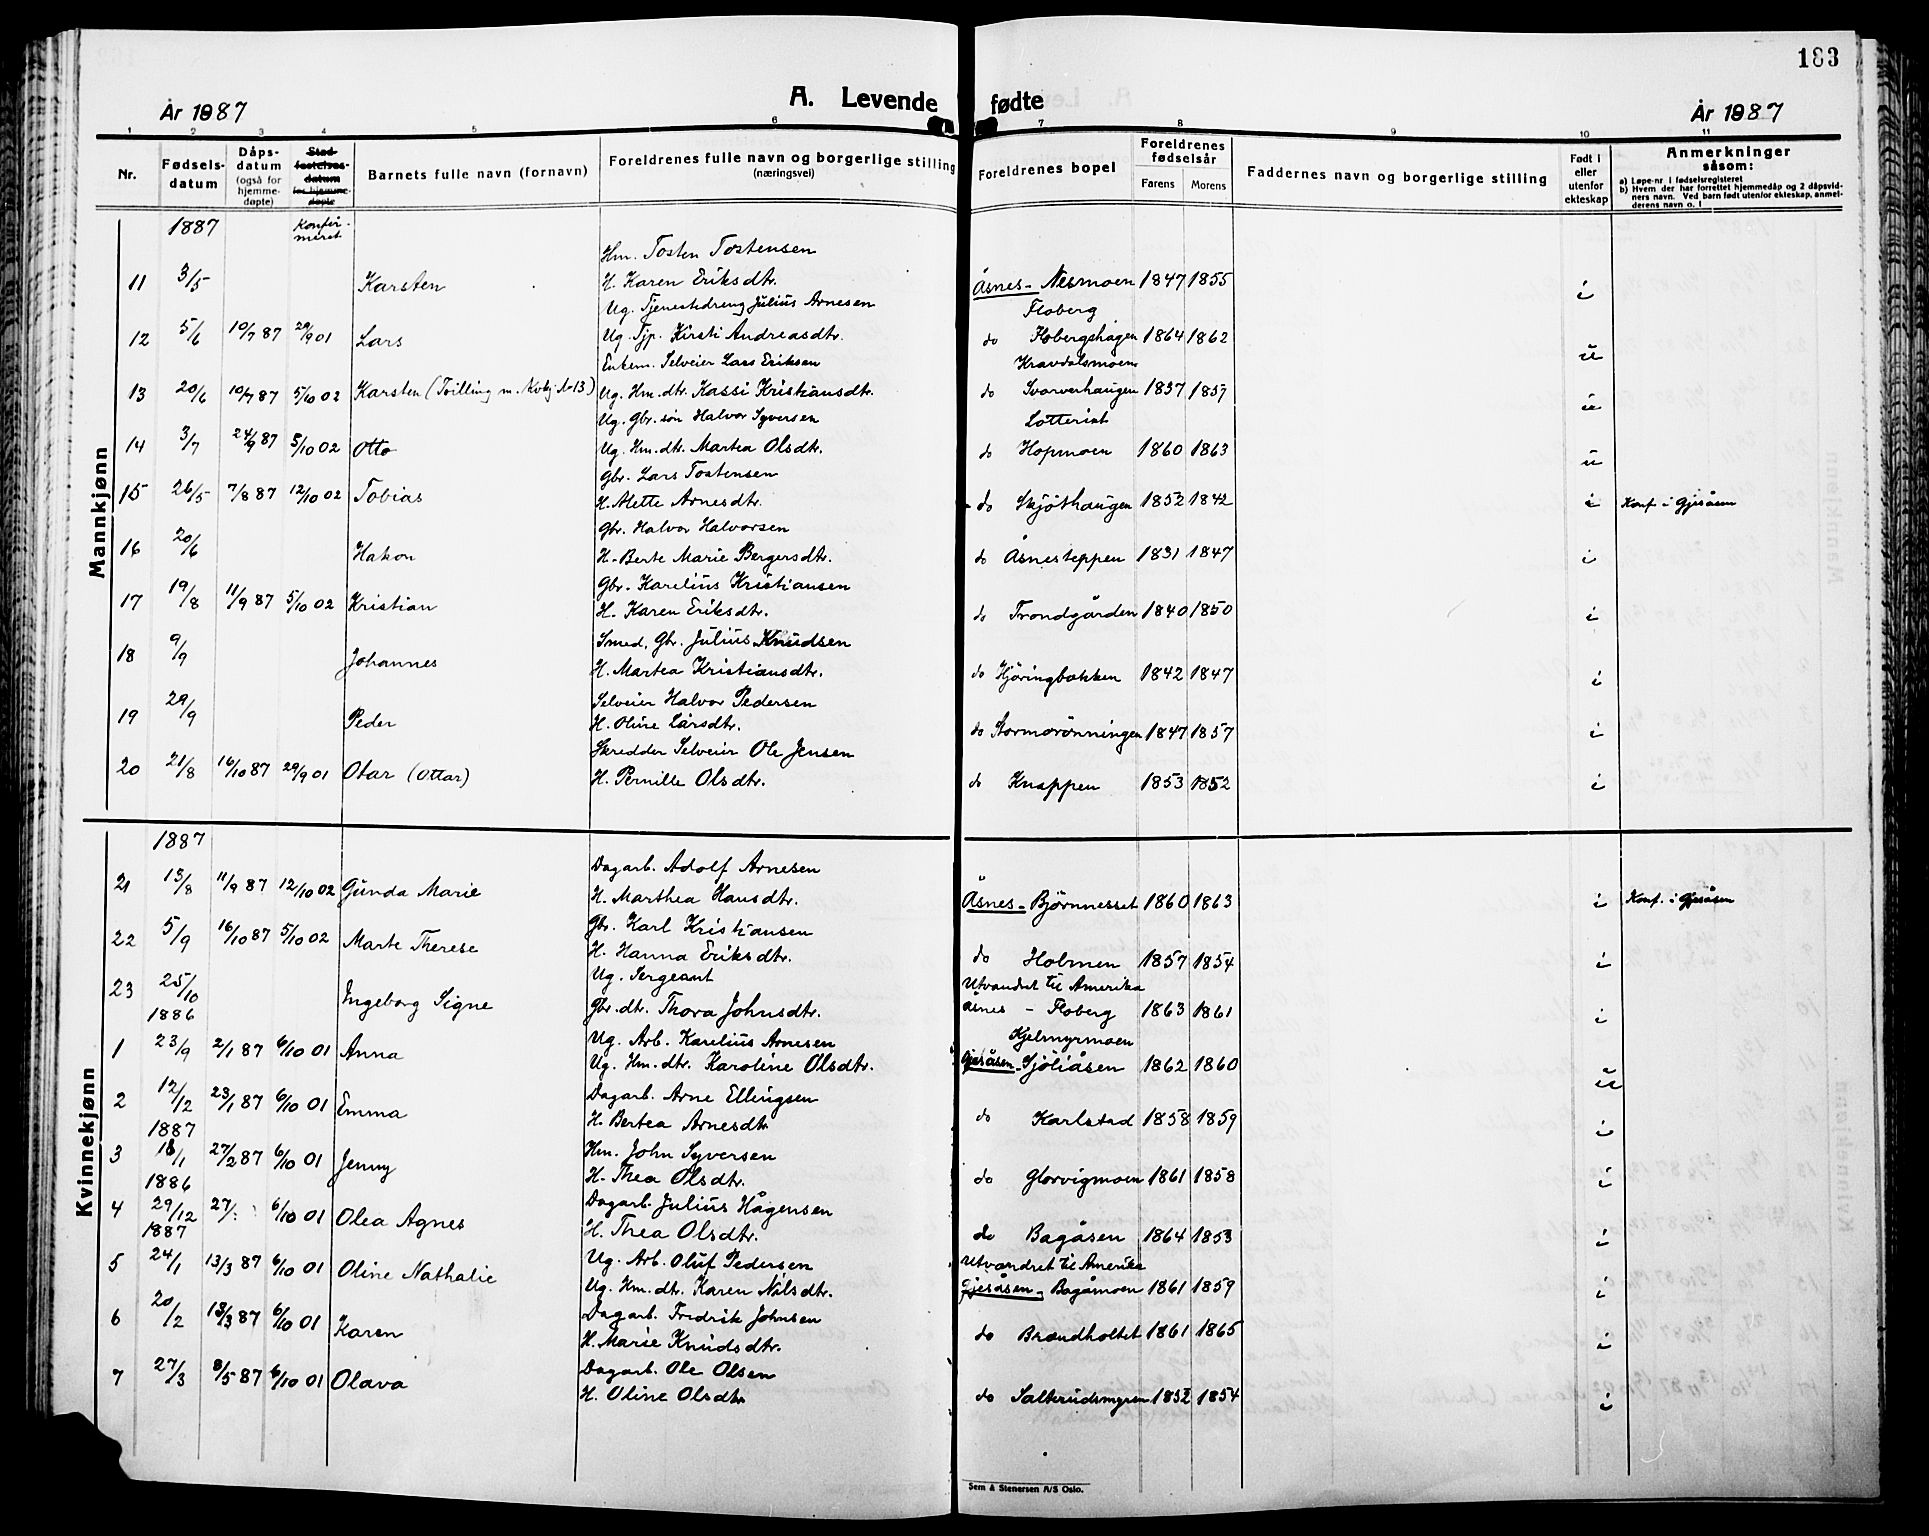 183
A. Levende fødte
År 1887
År 1887
1 2 3 4 5 6 7 8 9 10 11
Nr.
Fødsels-datum
Dåps-datum (også for hjemme-døpte)
Stad-festelses-datum for hjemme-døpte
Barnets fulle navn (fornavn)
Foreldrenes fulle navn og borgerlige stilling (næringsvei)
Foreldrenes bopel
Foreldrenes fødselsår
Farens Morens
Faddernes navn og borgerlige stilling
Født i eller utenfor ekteskap
Anmerkninger såsom:
a) Løpe-nr. i fødselsregisteret
b) Hvem der har forrettet hjemmedåp og 2 dåpsvid-
ners navn. Ved barn født utenfor ekteskap, anmel-
derens navn o. l
Mannkjønn
1887 Konfir-meret
Hm. Tosten Tostensen
11 3/5 Karsten H. Karen Eriksdtr. Åsnes - Nesmoen 1847 1855 i
Ug. Tjenestedreng Julius Arnesen Floberg
12 5/6 10/7 87 29/9 01 Lars Ug. Tjp. Kirsti Andreasdtr. do Flobergshagen 1864 1862 u
Enkem. Selveier Lars Eriksen Kravdalsmoen
13 20/6 10/7 87 5/10 02 Karsten (Tvilling m. Kvkj. N-13) Ug. Hm.dtr. Kassi Kristiansdtr. do Svarverhaugen 1837 1857 u
Ug. Gbr. søn Halvor Syversen Lotterist
14 3/7 24/9 87 5/10 02 Otto Ug. Hm.dtr. Martea Olsdtr. do Hopmoen 1860 1863 u
Gbr. Lars Tostensen
15 26/5 7/8 87 12/10 02 Tobias H. Mette Arnesdtr. do Skjöthaugen 1852 1842 i Konf. i Gjesåsen
Gbr. Halvor Halvorsen
16 20/6 Hakon H. Berte Marie Bergersdtr. do Åsnesteppen 1831 1847 i
Gbr. Karelius Kristiansen
17 19/8 11/9 87 5/10 02 Kristian H. Karen Eriksdtr. do Trondgården 1840 1850 i
Smed, Gbr. Julius Knudsen
18 9/9 Johannes H. Martea Kristiansdtr. do Hjöringbakken 1842 1847 i
Selveier Halvor Pedersen
19 29/9 Peder H. Oline Larsdtr. do Stormorönningen 1847 1857 i
Skredder Selveier Ole Jensen
20 21/8 16/10 87 29/9 01 Otar (Ottar) H. Pernille Olsdtr. do Knappen 1853 1852 i
Kvinnekjønn
1887
Dagarb. Adolf Arnesen
21 13/8 11/9 87 12/10 02 Gunda Marie H. Marthea Hansdtr. Åsnes - Björnnesset 1860 1863 i Konf. i Gjesåsen
Gbr. Karl Kristiansen
22 5/9 16/10 87 5/10 02 Marte Therese H. Hanna Eriksdtr. do Holmen 1857 1854 i
Ug. Sergeant Utvandret til Amerika
23 25/10 Ingeborg Signe Gbr.dtr. Thora Johnsdtr. Åsnes - Floberg 1863 1861 i
1886
Ug. Arb. Karelius Arnesen Kjelmyrmoen
1 23/9 2/1 87 6/10 01 Anna Ug. Hm.dtr. Karoline Olsdtr. Gjesåsen - Sjöliåsen 1862 1860 u
Dagarb. Arne Ellingsen
2 12/12 23/1 87 6/10 01 Emma H. Bertea Arnesdtr do Karlstad 1858 1859 i
1887
Hm. John Syversen
3 16/1 27/2 87 6/10 01 Jenny H. Thea Olsdtr. do Glorvigmoen 1861 1858 i
1886
Dagarb. Julius Hågensen
4 29/12 27/ 6/10 01 Olea Agnes H. Thea Olsdtr. do Bagåsen 1864 1853 i
1887
Ug. Arb. Oluf Pedersen Utvandret til Amerika
5 24/1 13/3 87 6/10 01 Oline Nathalie Ug. Hm.dtr. Karen Nilsdtr. Gjesåsen - Bagåmoen 1861 1859 i
Dagarb. Fredrik Johnsen
6 20/2 13/3 87 6/10 01 Karen H. Marie Knudsdtr. do Brændholtet 1861 1865 i
Dagarb. Ole Olsen
7 27/3 8/5 87 6/10 01 Olava H. Oline Olsdtr do Salterudsmyren 1852 1854 i
Sem & Stenersen A/S Oslo.